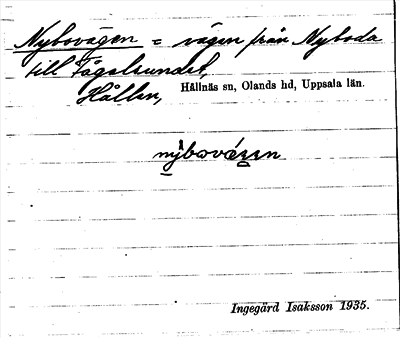 Nybovägen = vägen från Nyboda
till Fågelsundet,
Hållen,
Hållnäs sn, Olands hd, Uppsala län.
Ingegärd Isaksson 1935.